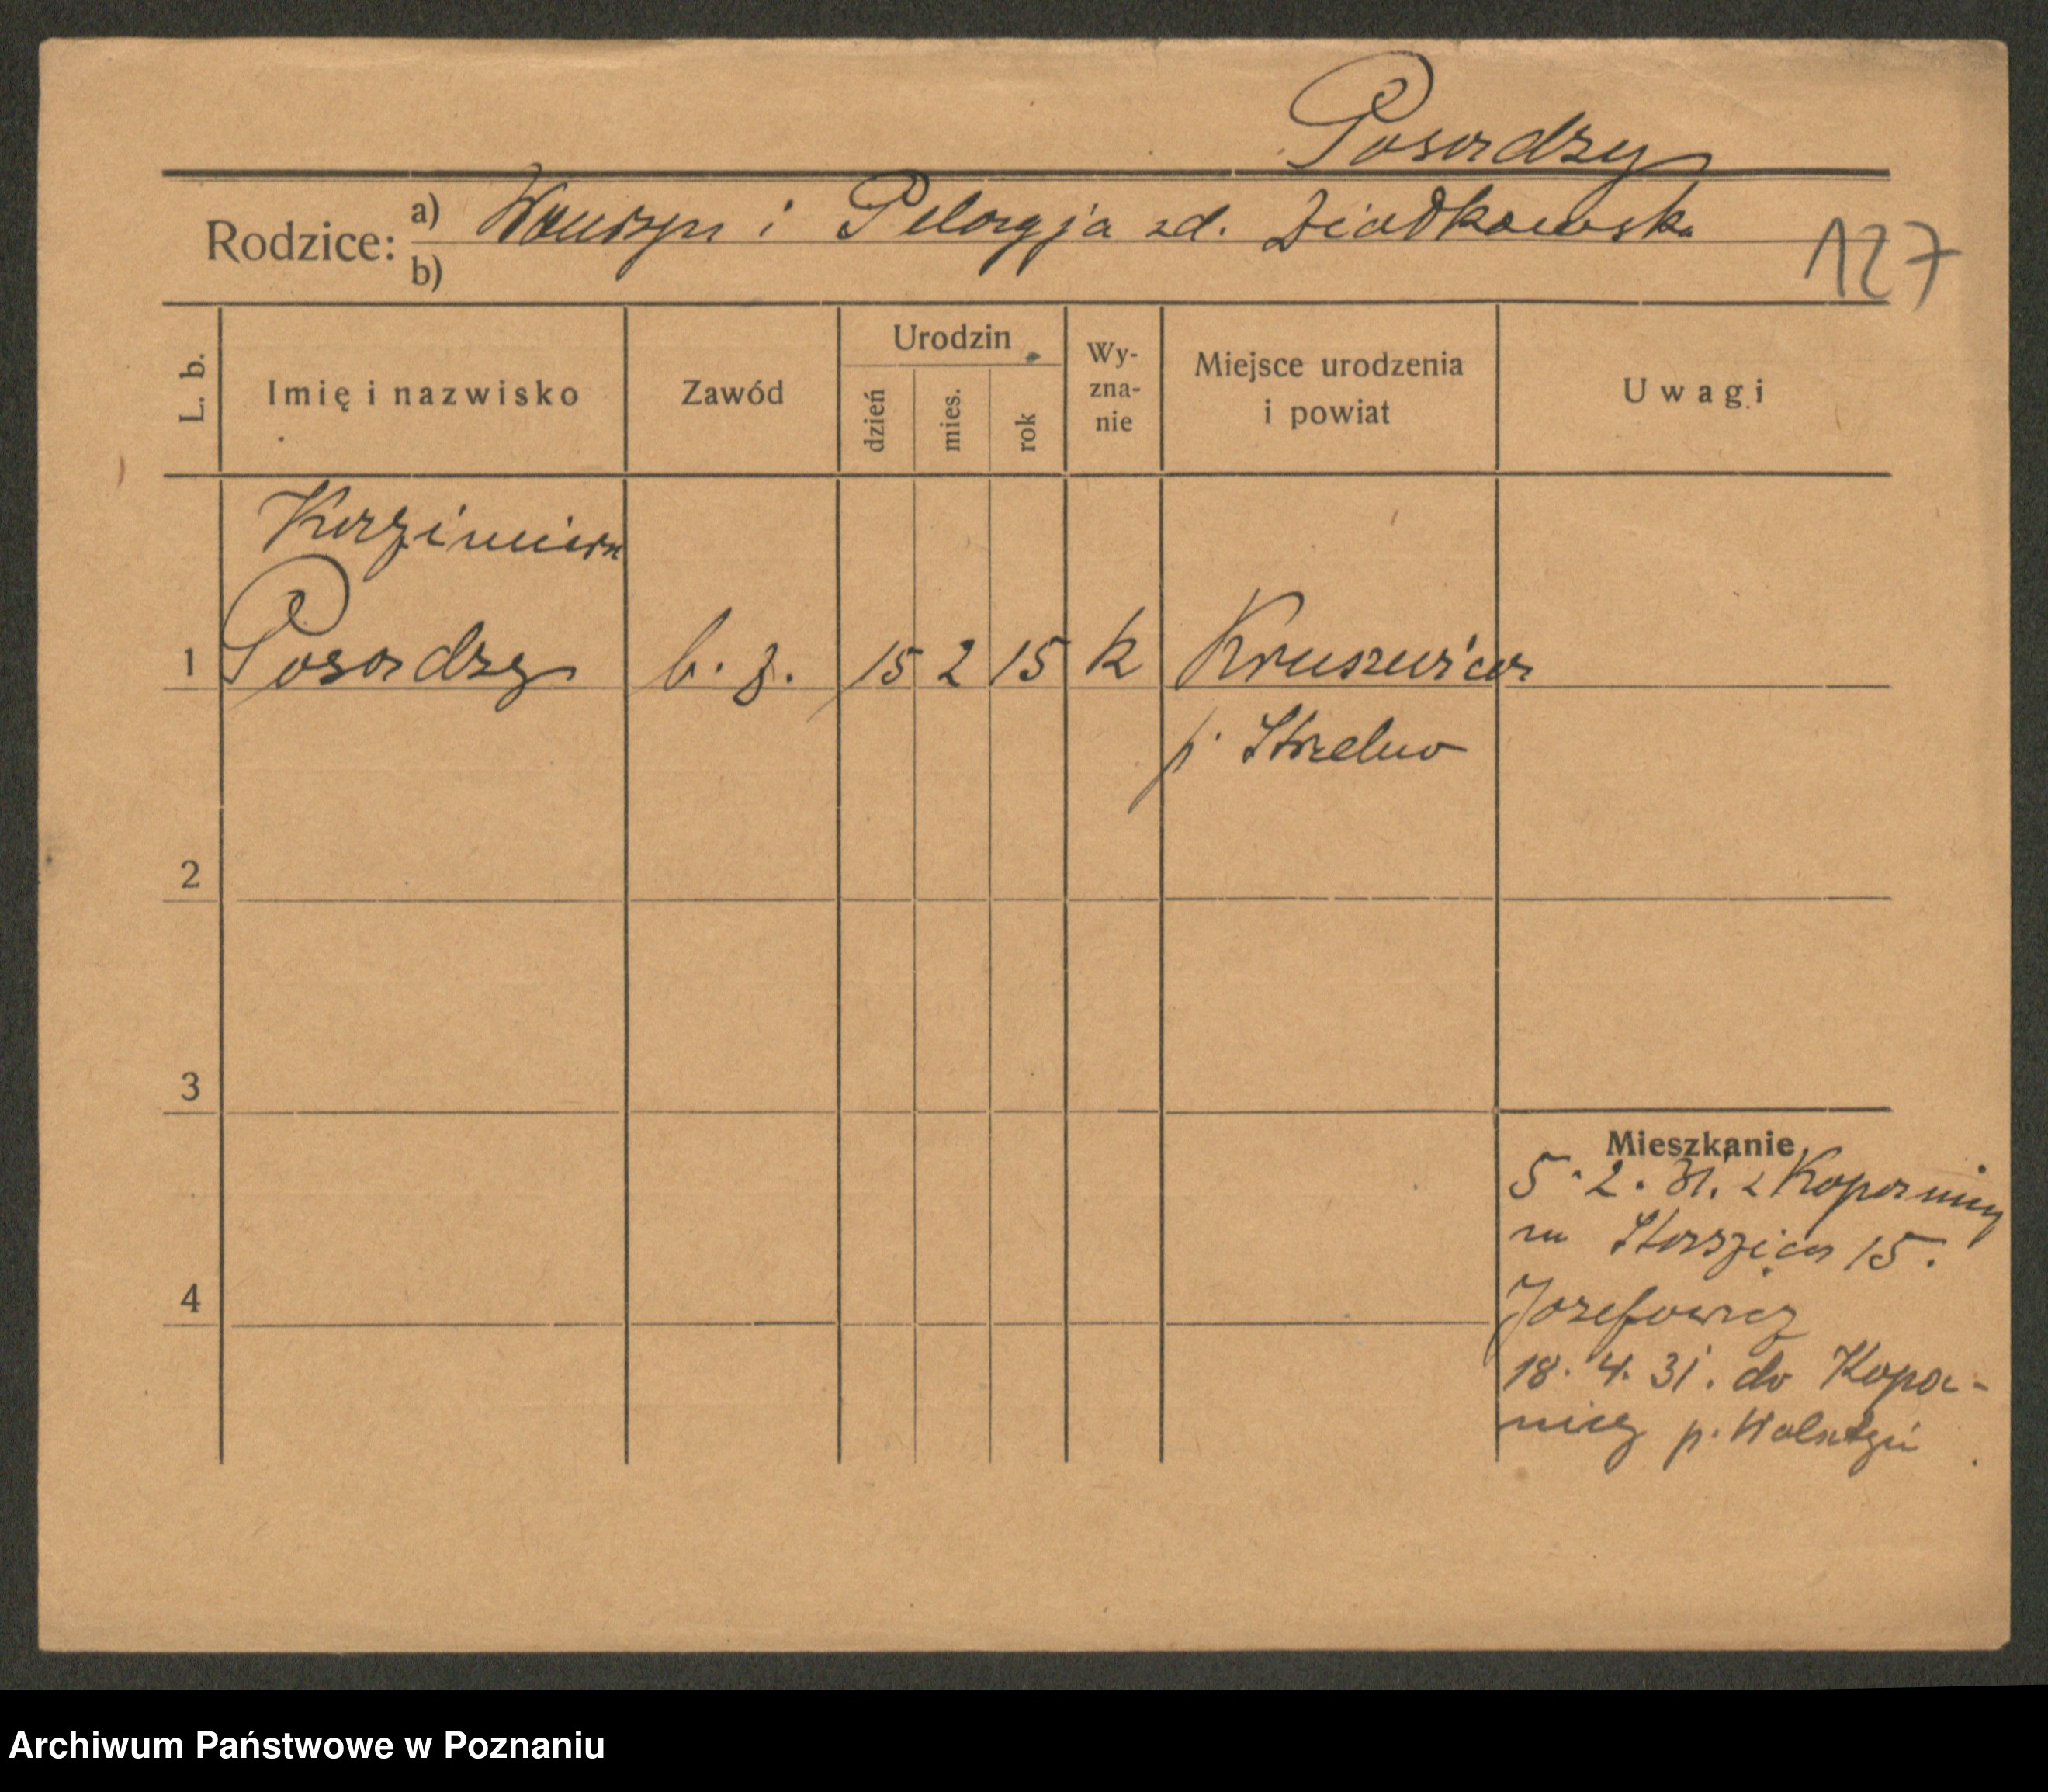 Posadzy
Rodzice: a) Wawrzyn i Pelagja zd. Dziadkowska
b)
127
L. b. Imię i nazwisko Zawód Urodzin dzień mies. rok Wy-zna-nie Miejsce urodzenia i powiat Uwagi
Kazimiera
1 Posadzy b. z. 15 2 15 k Kruszwica
p. Strzelno
2
3
Mieszkanie
5. 2. 31. z Kopanicy
na Staszica 15.
4
Józefowicz
18. 4. 31. do Kopa-
nicy p. Wolsztyn
Archiwum Państwowe w Poznaniu